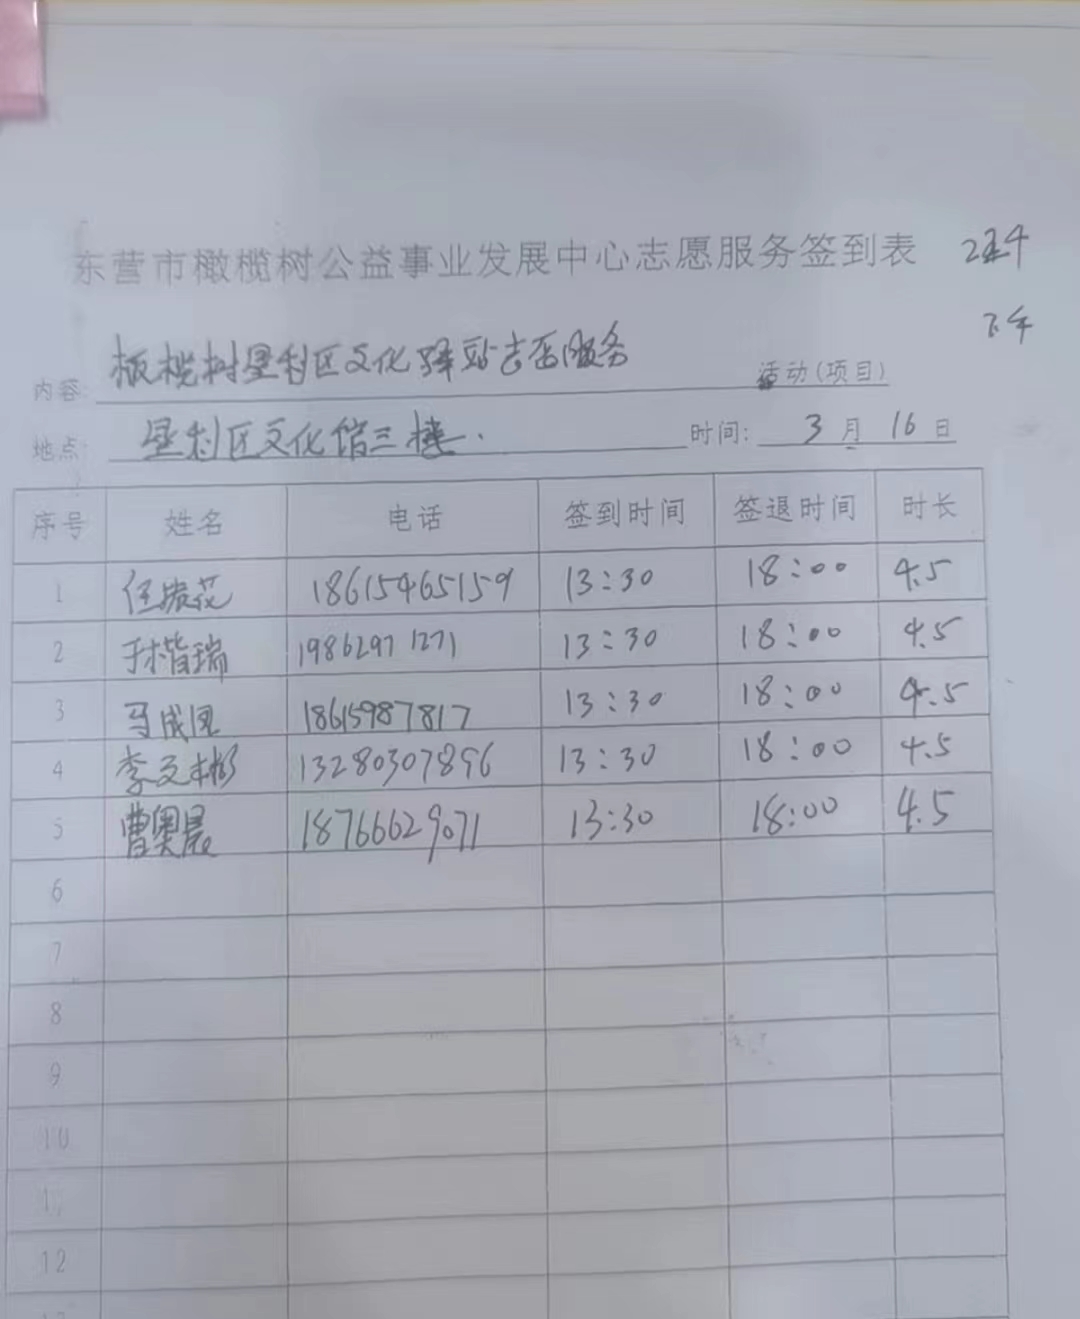 东营市橄榄树公益事业发展中心志愿服务签到表
下午
内容: 橄榄树垦利区文化驿站志愿服务 活动(项目)
地点: 垦利区文化馆三楼. 时间: 3月16日
序号 姓名 电话 签到时间 签退时间 时长
1 任 花 18615465159 13:30 18:00 4.5
2 孙楷瑞 19862971271 13:30 18:00 4.5
3 马成凤 18615987817 13:30 18:00 4.5
4 李文彬 13280307896 13:30 18:00 4.5
5 曹奥晨 18766629071 13:30 18:00 4.5
6
7
8
9
10
12